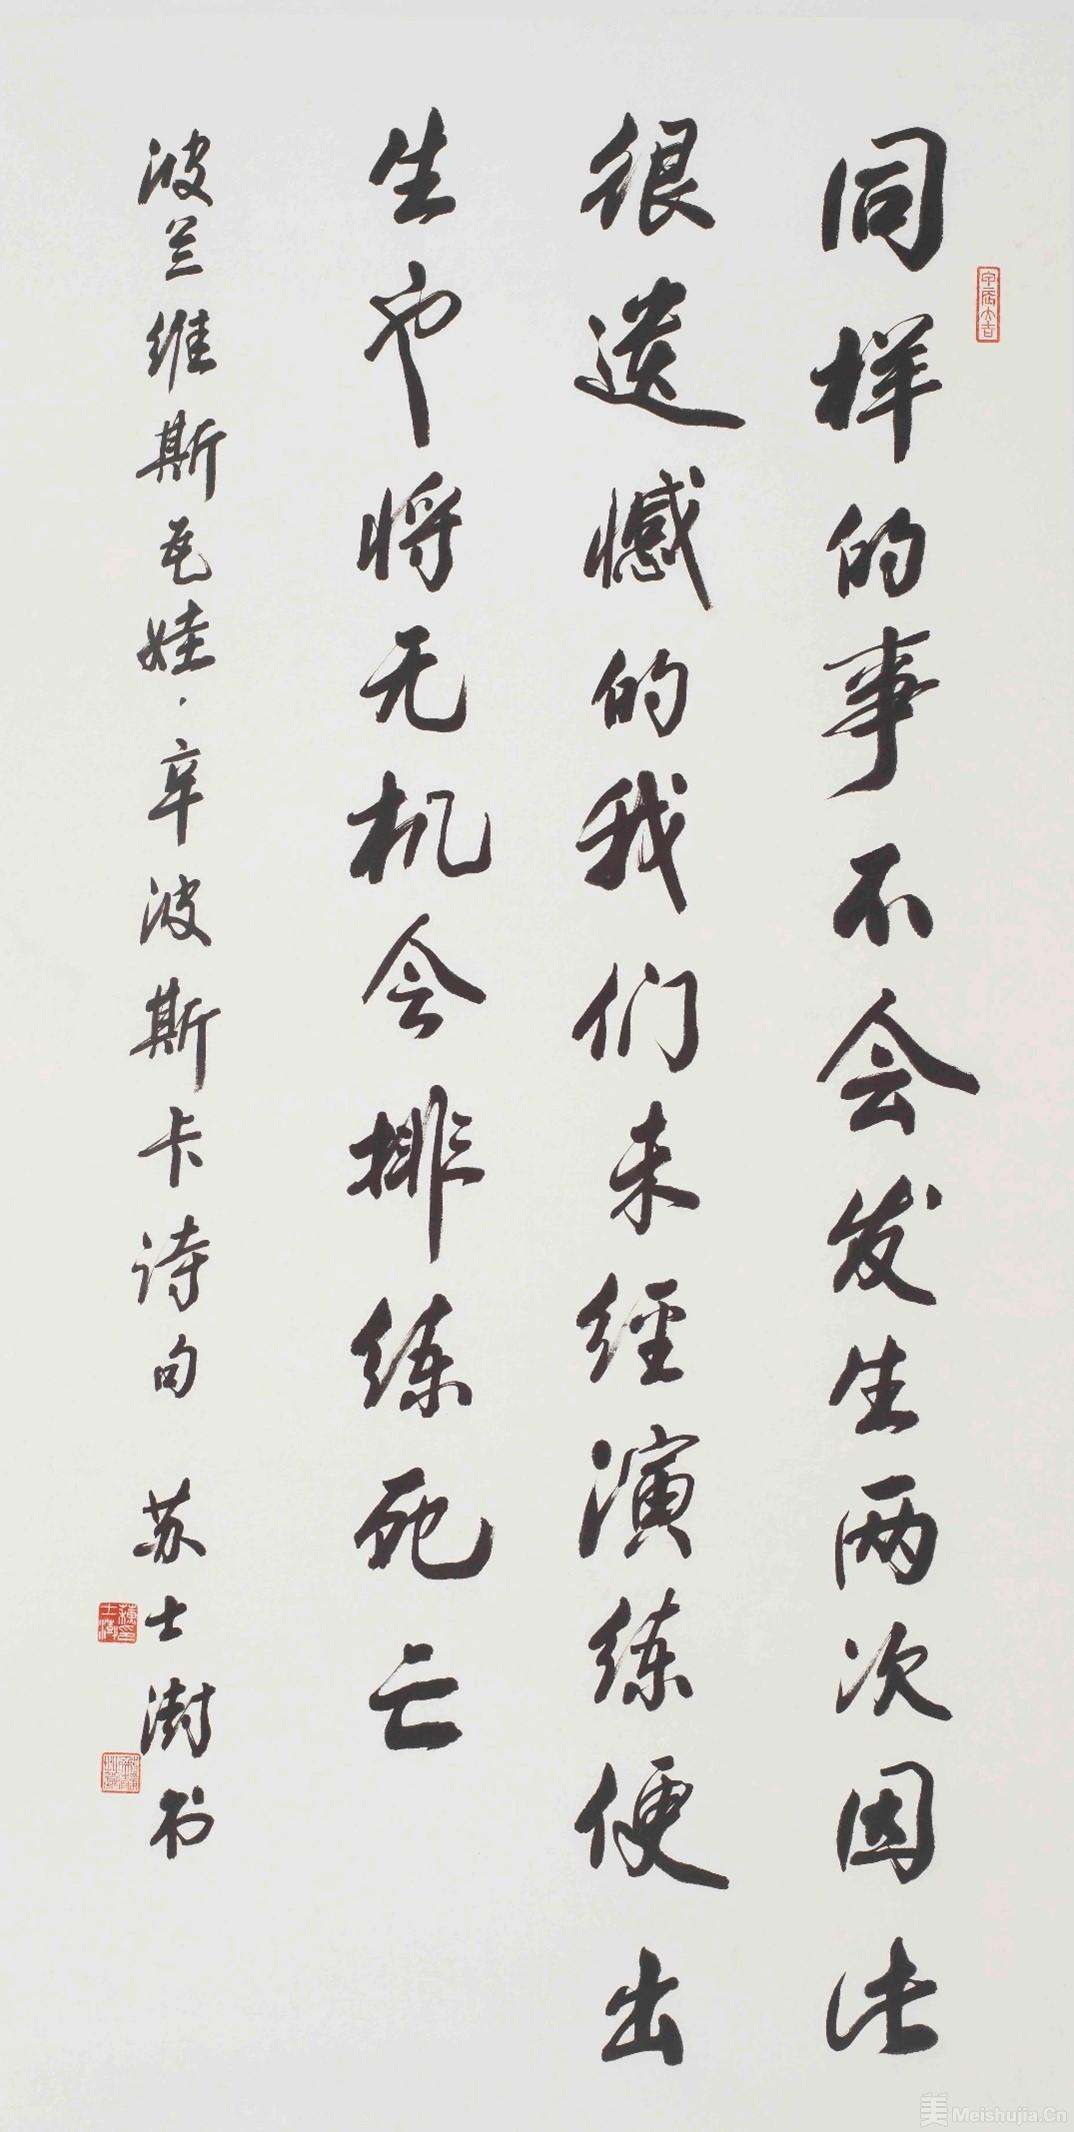 同样的事不会发生两次因此
很遗憾的我们未经演练便出
生也将无机会排练死亡
波兰维斯瓦娃·辛波斯卡诗句 苏士澍书
美 Meishujia.Cn